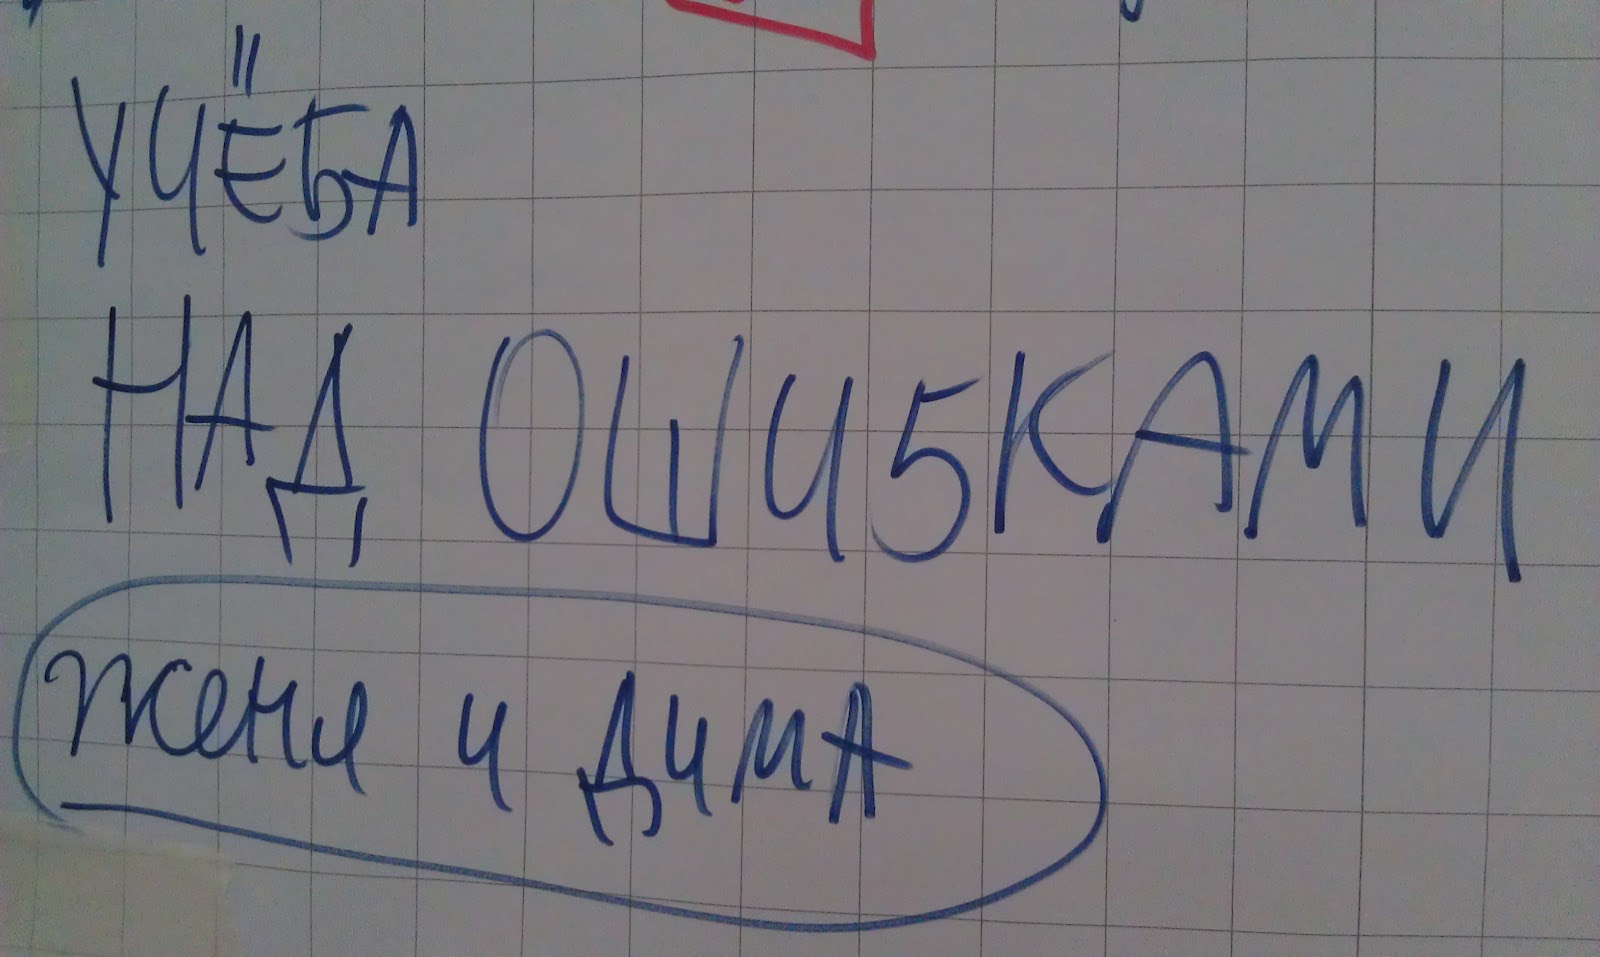 УЧЁБА
НАД ОШИБКАМИ
Женя и ДимА